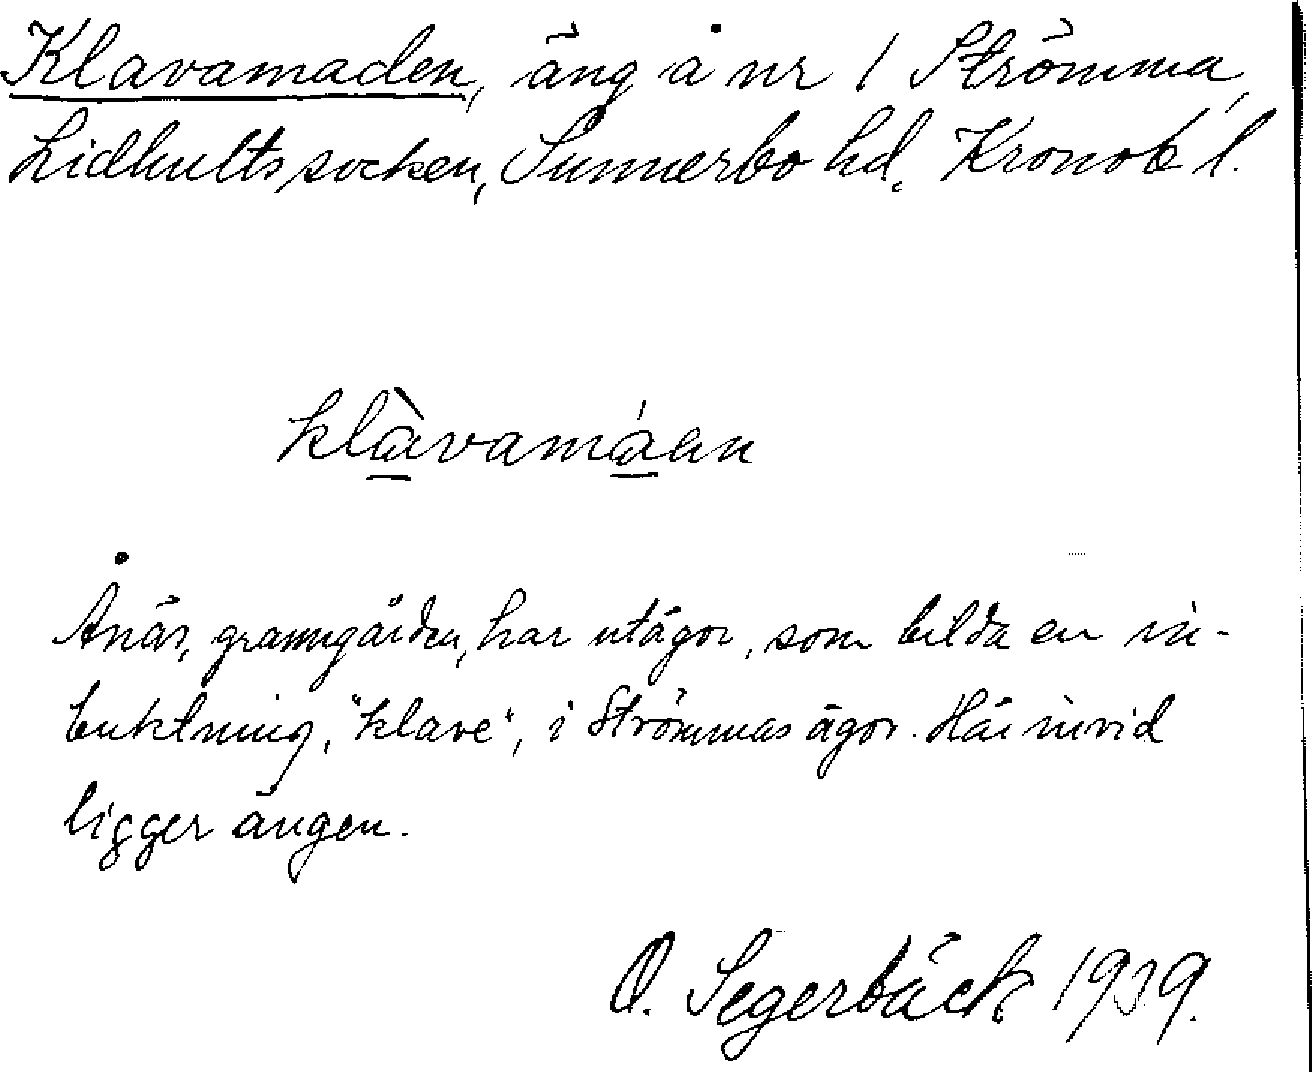 Klavamaden, äng å nr 1 Strömma,
Lidhults socken, Sunnerbo hd. Kronob l.
klàvamáen
Ånäs, granngården, har utägor, som bilda en in-
buktning, "klave", i Strömmas ägor. Här invid
ligger ängen.
O. Segerbäck 1939.